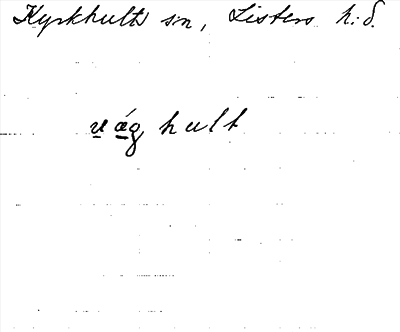 Kyrkhults sn, Listers h.d.
vǽg hult